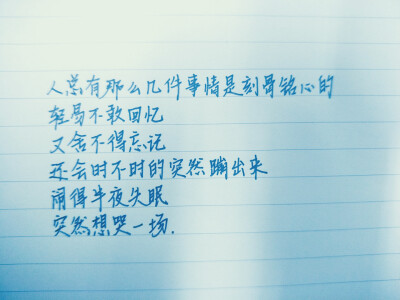 人总有那么几件事情是刻骨铭心的
轻易不敢回忆
又舍不得忘记
还会时不时的突然蹦出来
闹得半夜失眠
突然想哭一场.